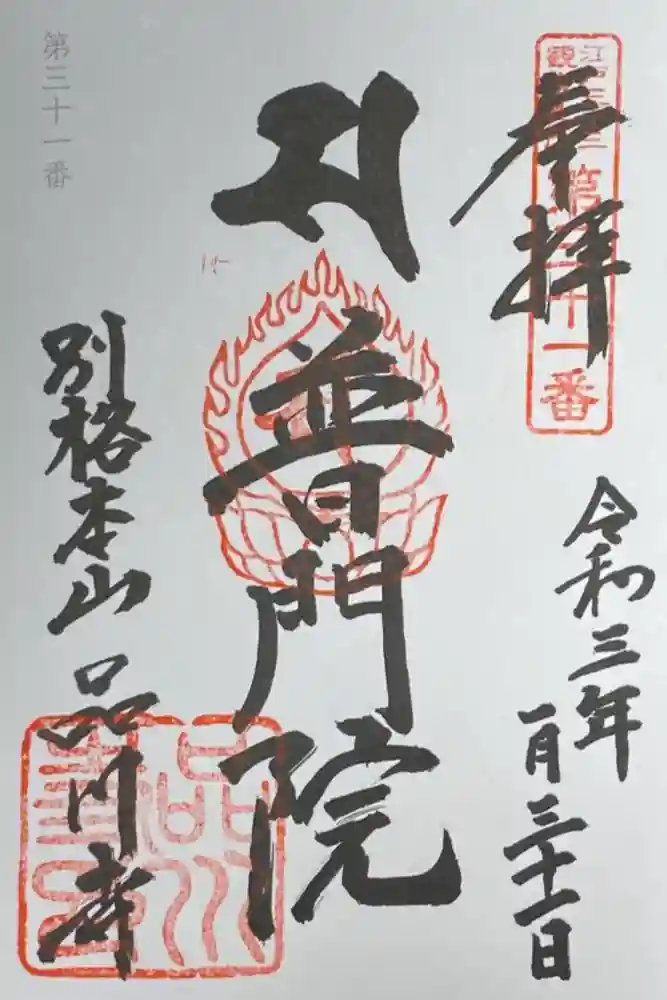 江戸三十三
観音
第三十一番
奉拝
令和三年
一月三十一日
普門院
第三十一番
別格本山 品川寺